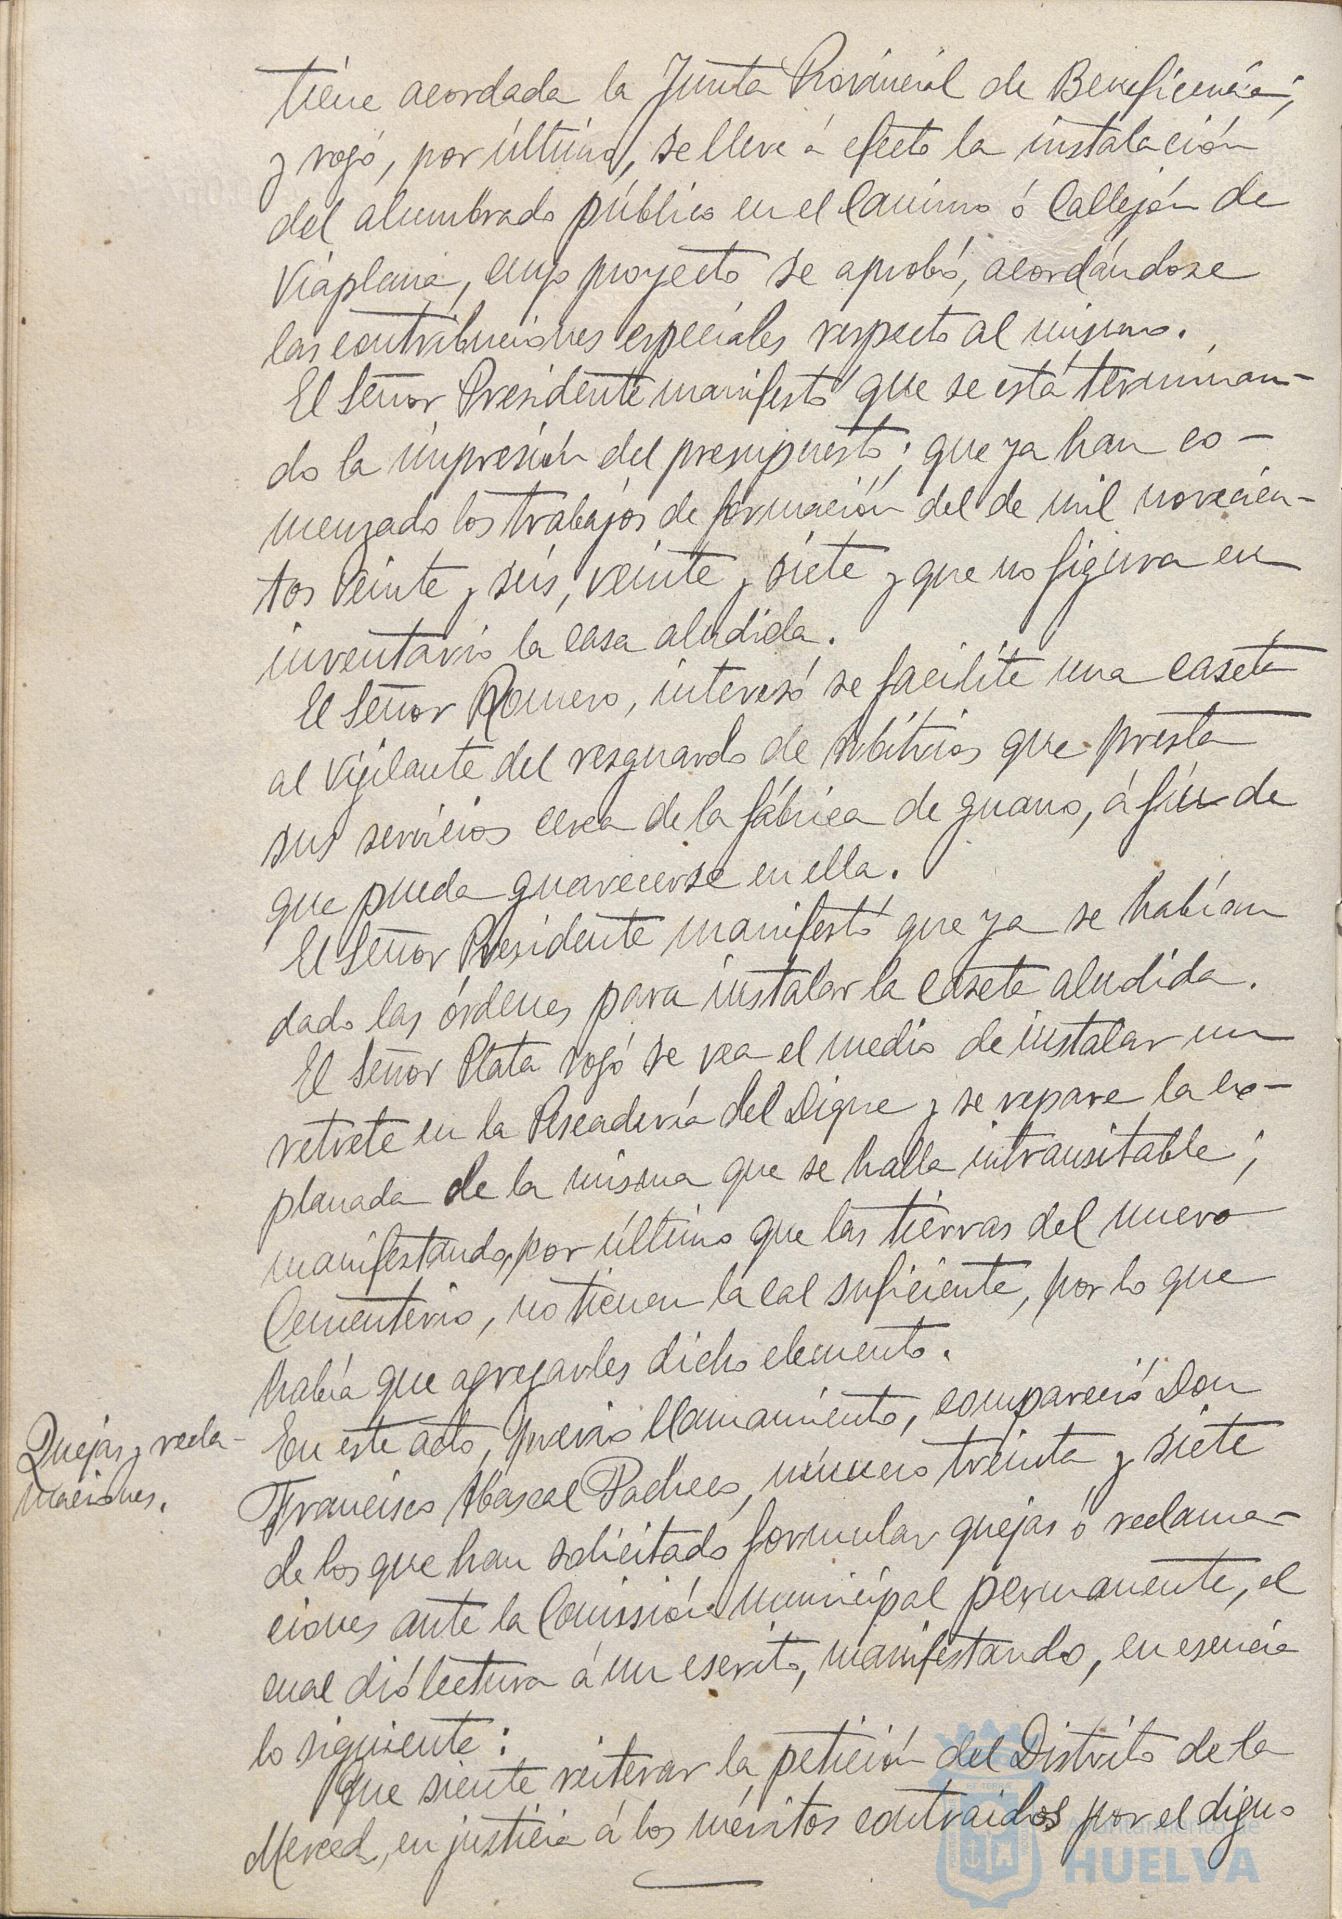 tiene acordada la Junta Provincial de Beneficencia;
y rogó, por último, se lleve á efecto la instalación
del alumbrado público en el Camino ó Callejón de
Viaplana, cuyo proyecto se aprobó, acordándose
las contribuciones especiales respecto al mismo.
El Señor Presidente manifestó que se está terminan-
do la impresión del presupuesto; que ya han co-
menzado los trabajos de formación del de mil novecien-
tos veinte y seis, veinte y siete y que no figura en
inventario la casa aludida.
El Señor Romero, interesó se facilite una caseta
al Vigilante del resguardo de arbitrios que presta
sus servicios cerca de la fábrica de guano, á fin de
que pueda guarecerse en ella.
El Señor Presidente manifestó que ya se habían
dado las órdenes para instalar la caseta aludida.
El Señor Plata rogó se vea el medio de instalar un
retrete en la Pescadería del Dique y se repare la ex-
planada de la misma que se halla intransitable;
manifestando, por último que las tierras del nuevo
Cementerio, no tienen la cal suficiente, por lo que
había que agregarles dicho elemento.
Quejas y recla-
maciones.
En este acto, previo llamamiento, compareció Don
Francisco Abascal Pacheco, número treinta y siete
de los que han solicitado formular quejas ó reclama-
ciones ante la Comisión municipal permanente, el
cual dió lectura á un escrito, manifestando, en esencia
lo siguiente:
Que siente reiterar la petición del Distrito de la
Merced, en justicia á los méritos contraidos por el digno
Ayuntamiento de
HUELVA